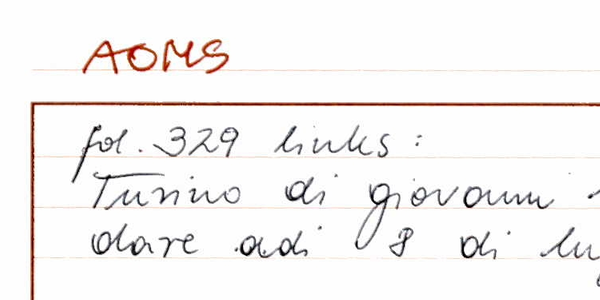 AOMS
fol. 329 links:
Turino di giovanni
dare adi 8 di